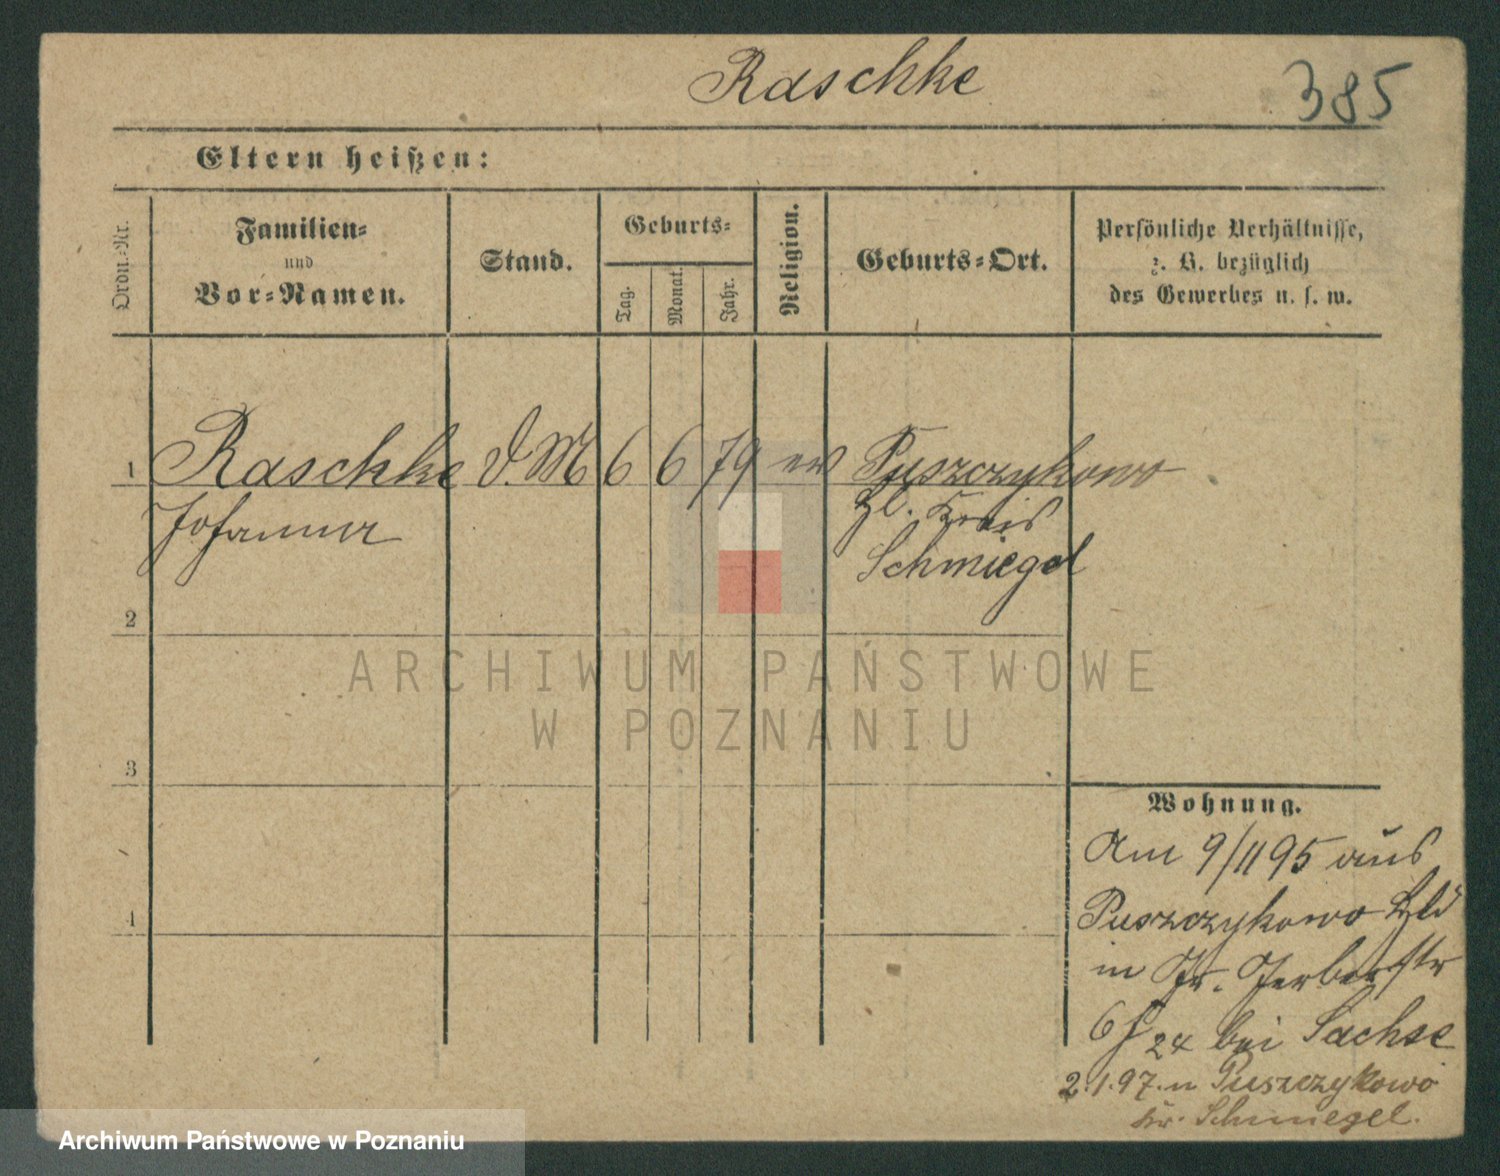 Raschke
385
Eltern heißen:
Ordn.-Nr.
Familien-
und
Vor-Namen.
Stand.
Geburts-
Tag.
Monat.
Jahr.
Religion.
Geburts-Ort.
Persönliche Verhältnisse,
z. B. bezüglich
des Gewerbes u. s. w.
1 Raschke D.M 6 6 79 ev Puszczykowo
Johanna Hl. Kreis
Schmiegel
2
3
4
ARCHIWUM PAŃSTWOWE
W POZNANIU
Wohnung.
Am 9/11 95 aus
Puszczykowo
in Gr. Gerberstr
24 bei Sachse
2.1.97. n Puszczykowo
Kr. Schmiegel.
Archiwum Państwowe w Poznaniu